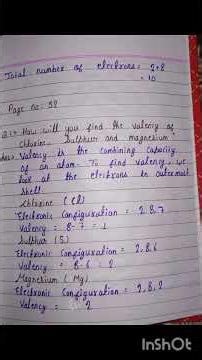 Total number of electrons = 2+8
= 10
Page no: 38
Q.1→ How will you find the valency of
Chlorine, Sulphur and magnesium
Ans→ Valency is the combining capacity
of an atom. To find valency, we
look at the electrons in outermost
shell.
Chlorine (Cl)
Electronic Configuration = 2,8,7
Valency = 8-7 = 1
Sulphur (S)
Electronic Configuration = 2,8,6
Valency = 8-6 = 2
Magnesium (Mg)
Electronic Configuration = 2,8,2
Valency = 2
InShot